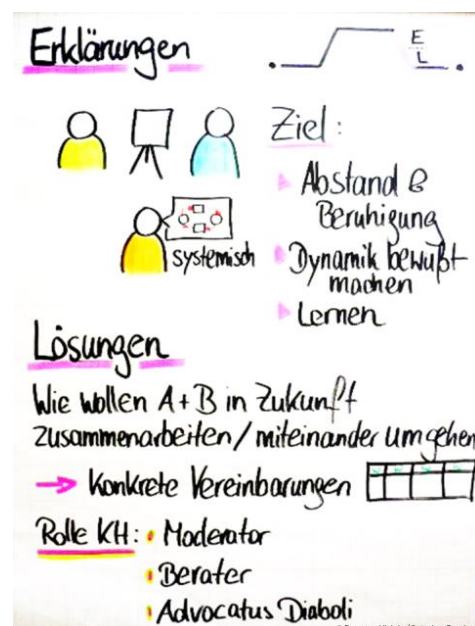 Erklärungen
E
L
Ziel:
Abstand &
Beruhigung
Dynamik bewußt
machen
Lernen
systemisch
Lösungen
Wie wollen A+B in Zukunft
zusammenarbeiten/miteinander umgehen
→ Konkrete Vereinbarungen
Rolle KH: • Moderator
• Berater
• Advocatus Diaboli